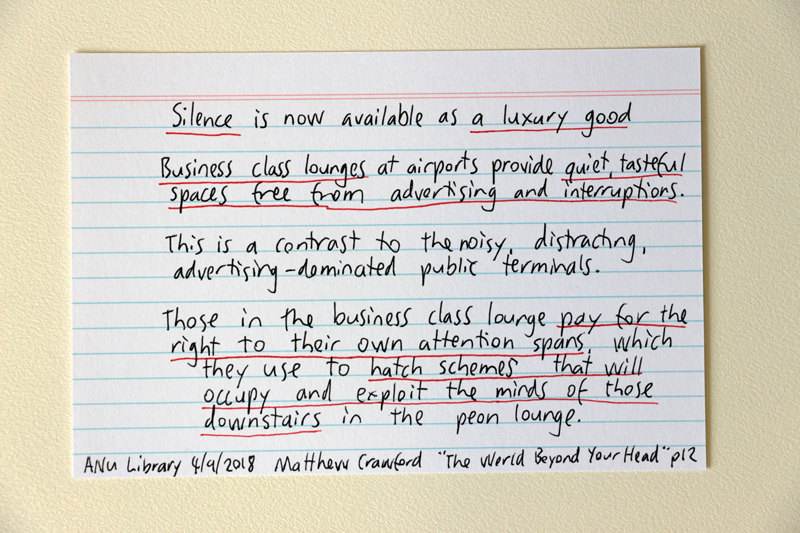 Silence is now available as a luxury good
Business class lounges at airports provide quiet, tasteful
spaces free from advertising and interruptions.
This is a contrast to the noisy, distracting,
advertising-dominated public terminals.
Those in the business class lounge pay for the
right to their own attention spans, which
they use to hatch schemes that will
occupy and exploit the minds of those
downstairs in the peon lounge.
ANU Library 4/9/2018 Matthew Crawford "The World Beyond Your Head" p12